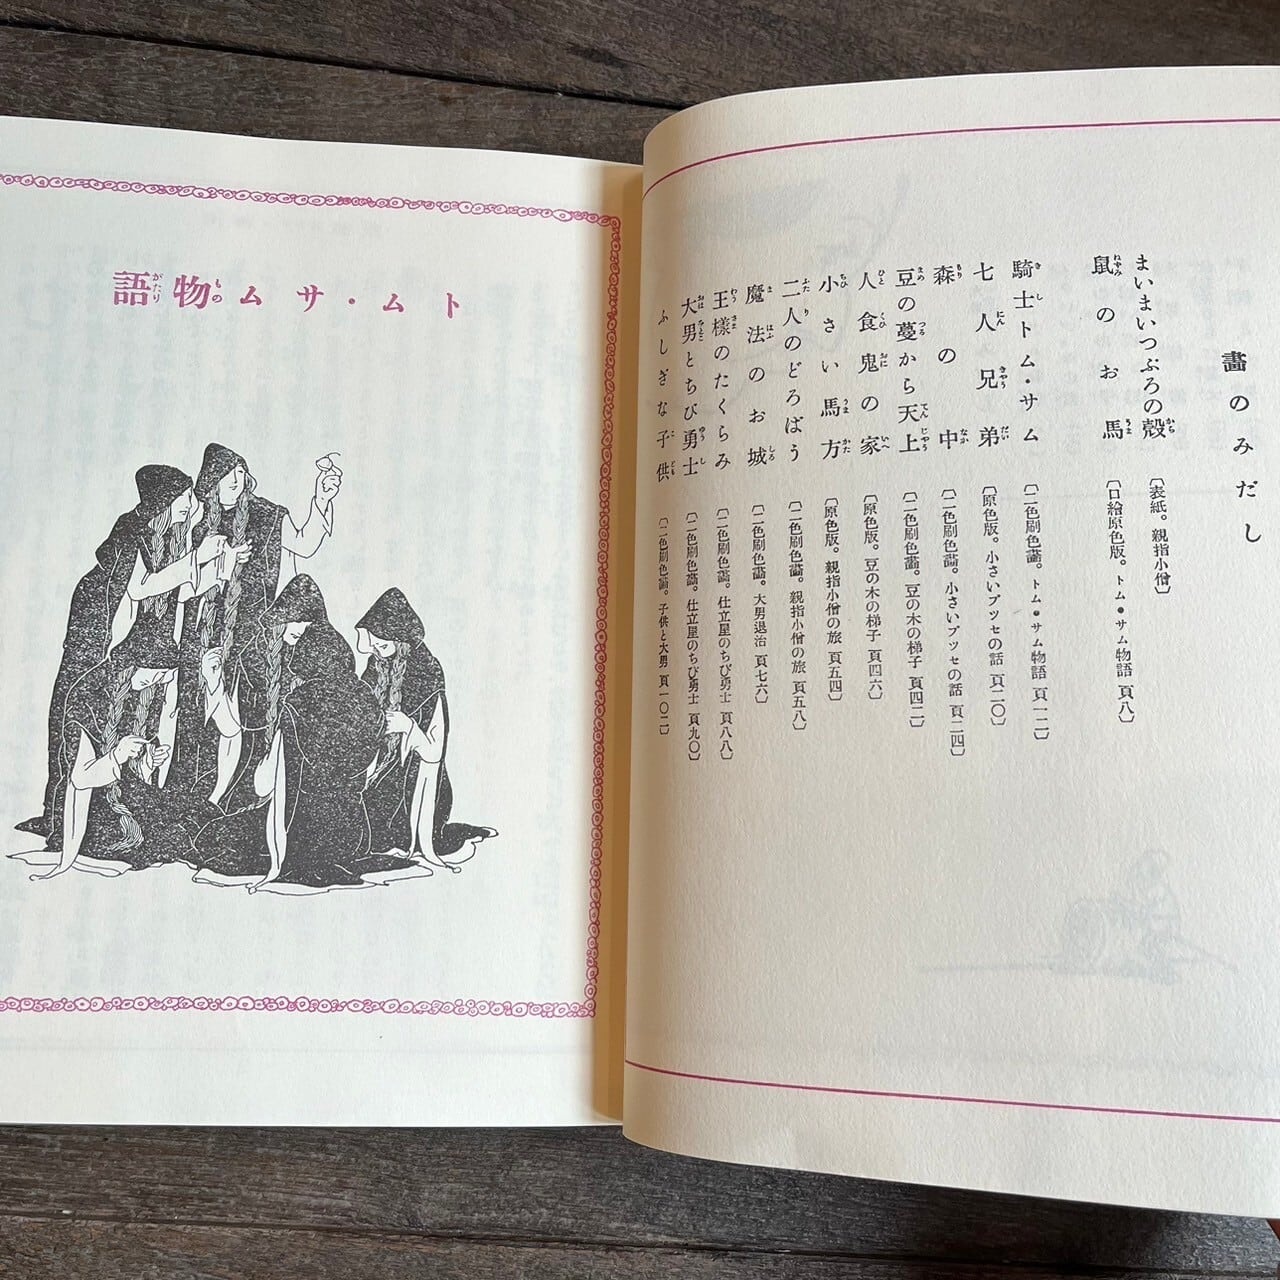 畫のみだし
まいまいつぶろの殼 〔表紙。親指小僧〕
鼠のお馬 〔口繪原色版。トム・サム物語 頁八〕
騎士トム・サム 〔二色刷色畵。トム・サム物語 頁一二〕
七人兄弟 〔原色版。小さいプッセの話 頁二〇〕
森の中 〔二色刷色畵。小さいプッセの話 頁二四〕
豆の蔓から天上 〔二色刷色畵。豆の木の梯子 頁四二〕
人食鬼の家 〔原色版。豆の木の梯子 頁四六〕
小さい馬方 〔原色版。親指小僧の旅 頁五四〕
二人のどろばう 〔二色刷色畵。親指小僧の旅 頁五八〕
魔法のお城 〔二色刷色畵。大男退治 頁七六〕
王樣のたくらみ 〔二色刷色畵。仕立屋のちび勇士 頁八八〕
大男とちび勇士 〔二色刷色畵。仕立屋のちび勇士 頁九〇〕
ふしぎな子供 〔二色刷色畵。子供と大男 頁一〇二〕
トム・サム物語